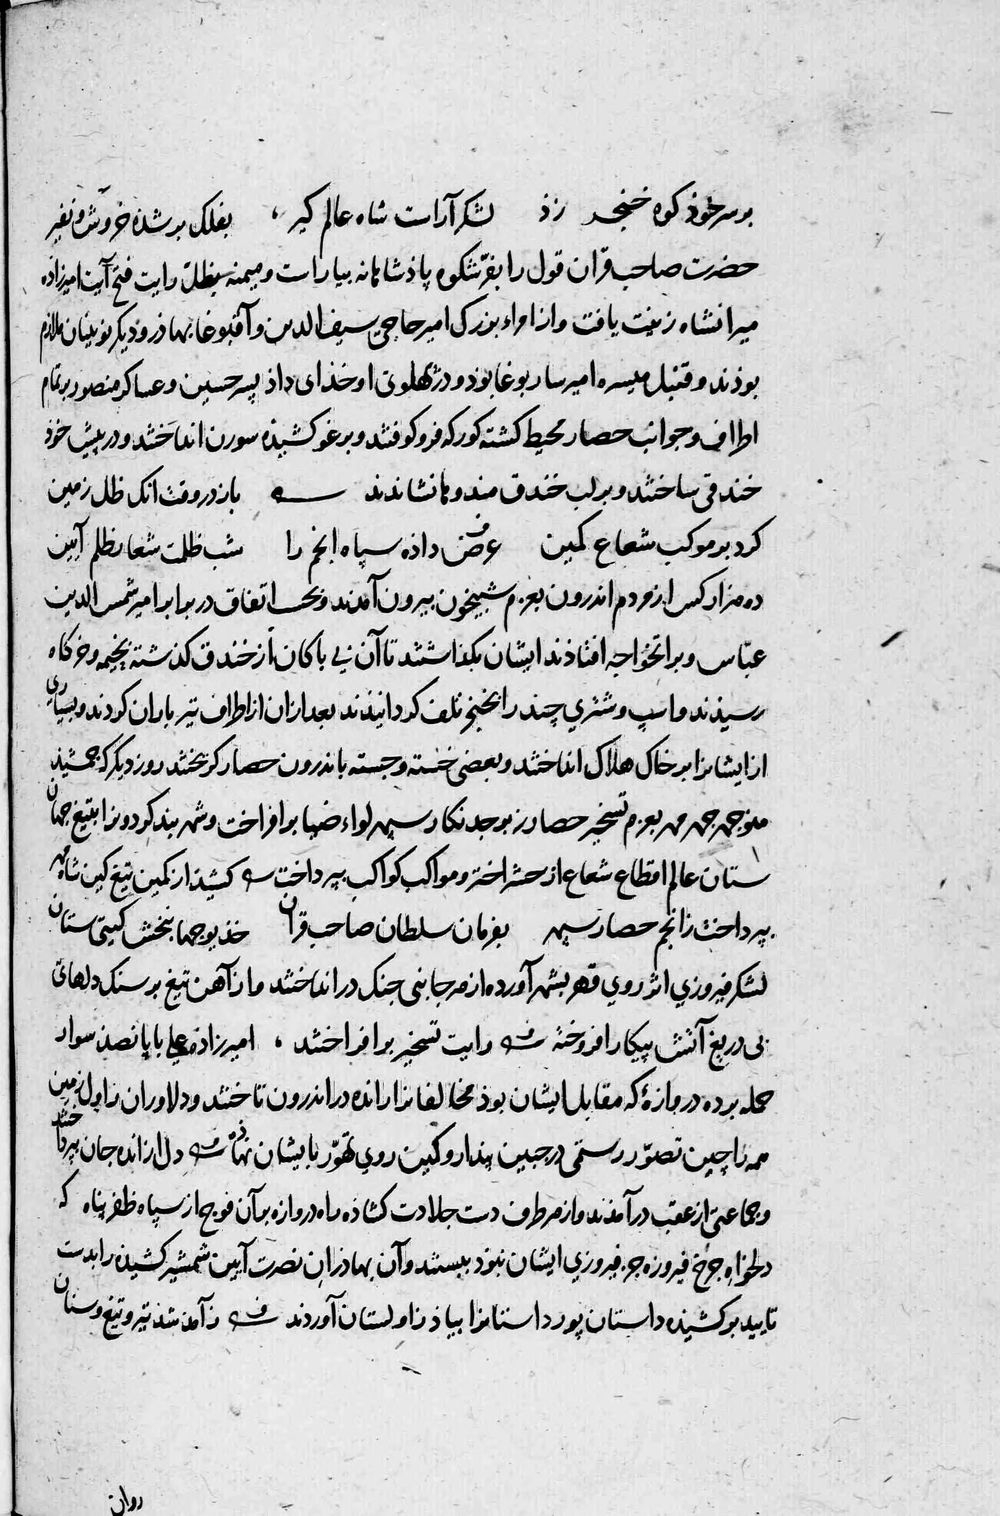 بر سر خوذ کوه خنجر زذ لشکر آراست شاه عالم کیر ، بفلک بر شذه خروش و نفیر
حضرت صاحب قران قول را بفر شکوه پاذشاهانه بیاراست و میمنه بظل رایت فتح آیت امیرزاده
میرانشاه زینت یافت و از امراء بزرک امیر حاجی سیف الدین و آقبوغا بهاذر و دیکر نوینان ملازم
بوذند و قنبل میسره امیر سار بوغا بوذ و در پهلوی او خذای داذ پسر حسین و عساکر منصور بر تمام
اطراف و جوانب حصار محیط کشته کورکه فرو کوفتند و برغو کشیذه سورن انداختند و در پیش خوذ
خندقی ساختند و بر لب خندق مندوها نشاندند باز در وقت انک ظل زمین
کرد بر موکب شعاع کمین عرض داذه سپاه انجم را شب ظلمت شعار ظلم آیین
ده هزار کس از مردم اندرون بعزم شبیخون بیرون آمدند و بحسب اتفاق در برابر امیر شمس الدین
عباس و براتخواجه افتاذند ایشان بکذاشتند تا آن بی باکان از خندق کذشته بخیمه و خرکاه
رسیذند و اسب و شتری چند را بخنجر تلف کردانیذند بعد از ان از اطراف تیر باران کردند و بسیاری
از ایشانرا بر خاک هلاک انداختند و بعضی خسته و جسته باندرون حصار کریختند روز دیکر که جمشیذ
منوجهر جهر مهر بعزم تسخیر حصار زبرجد نکار سپهر لواء ضیا بر افراخت و شهر بند کردونرا بتیغ جهان
ستان عالم اقطاع شعاع از حشر اختر و مواکب کواکب بپرداخت کشیذ از کمین تیغ کین شاه مهر
بپرداخت زانجم حصار سپهر بفرمان سلطان صاحب قران خذیو جهان بخش کیتی ستان
لشکر فیروزی اثر روی قهر بشهر آورده از هر جانبی جنک در انداختند و از آهن تیغ بر سنک دلهای
بی دریغ آتش پیکار افروخته رایت تسخیر بر افراختند ، امیرزاده علی با پانصذ سوار
حمله برده دروازهٔ که مقابل ایشان بوذ مخالفانرا رانده در اندرون تاختند و دلاوران زاول زمین
همه را چین تصوّر رستمی در جبین پندار و کین روی تهوّر بایشان نهاده دل از انده جان بپرداختند
و جماعتی از عقب در آمذند و از هر طرف دست جلادت کشاده راه دروازه بر آن فوج از سپاه ظفر پناه که
دلخواه جرخ فیروزه جز فیروزی ایشان نبوذ ببستند و آن بهاذران نصرت آیین شمشیر کشیذه را بدست
تایید بر کشیذه داستان پور دستانرا بیاذ زاولستان آوردند ز آمذ شذ تیر و تیغ و سنان
روان